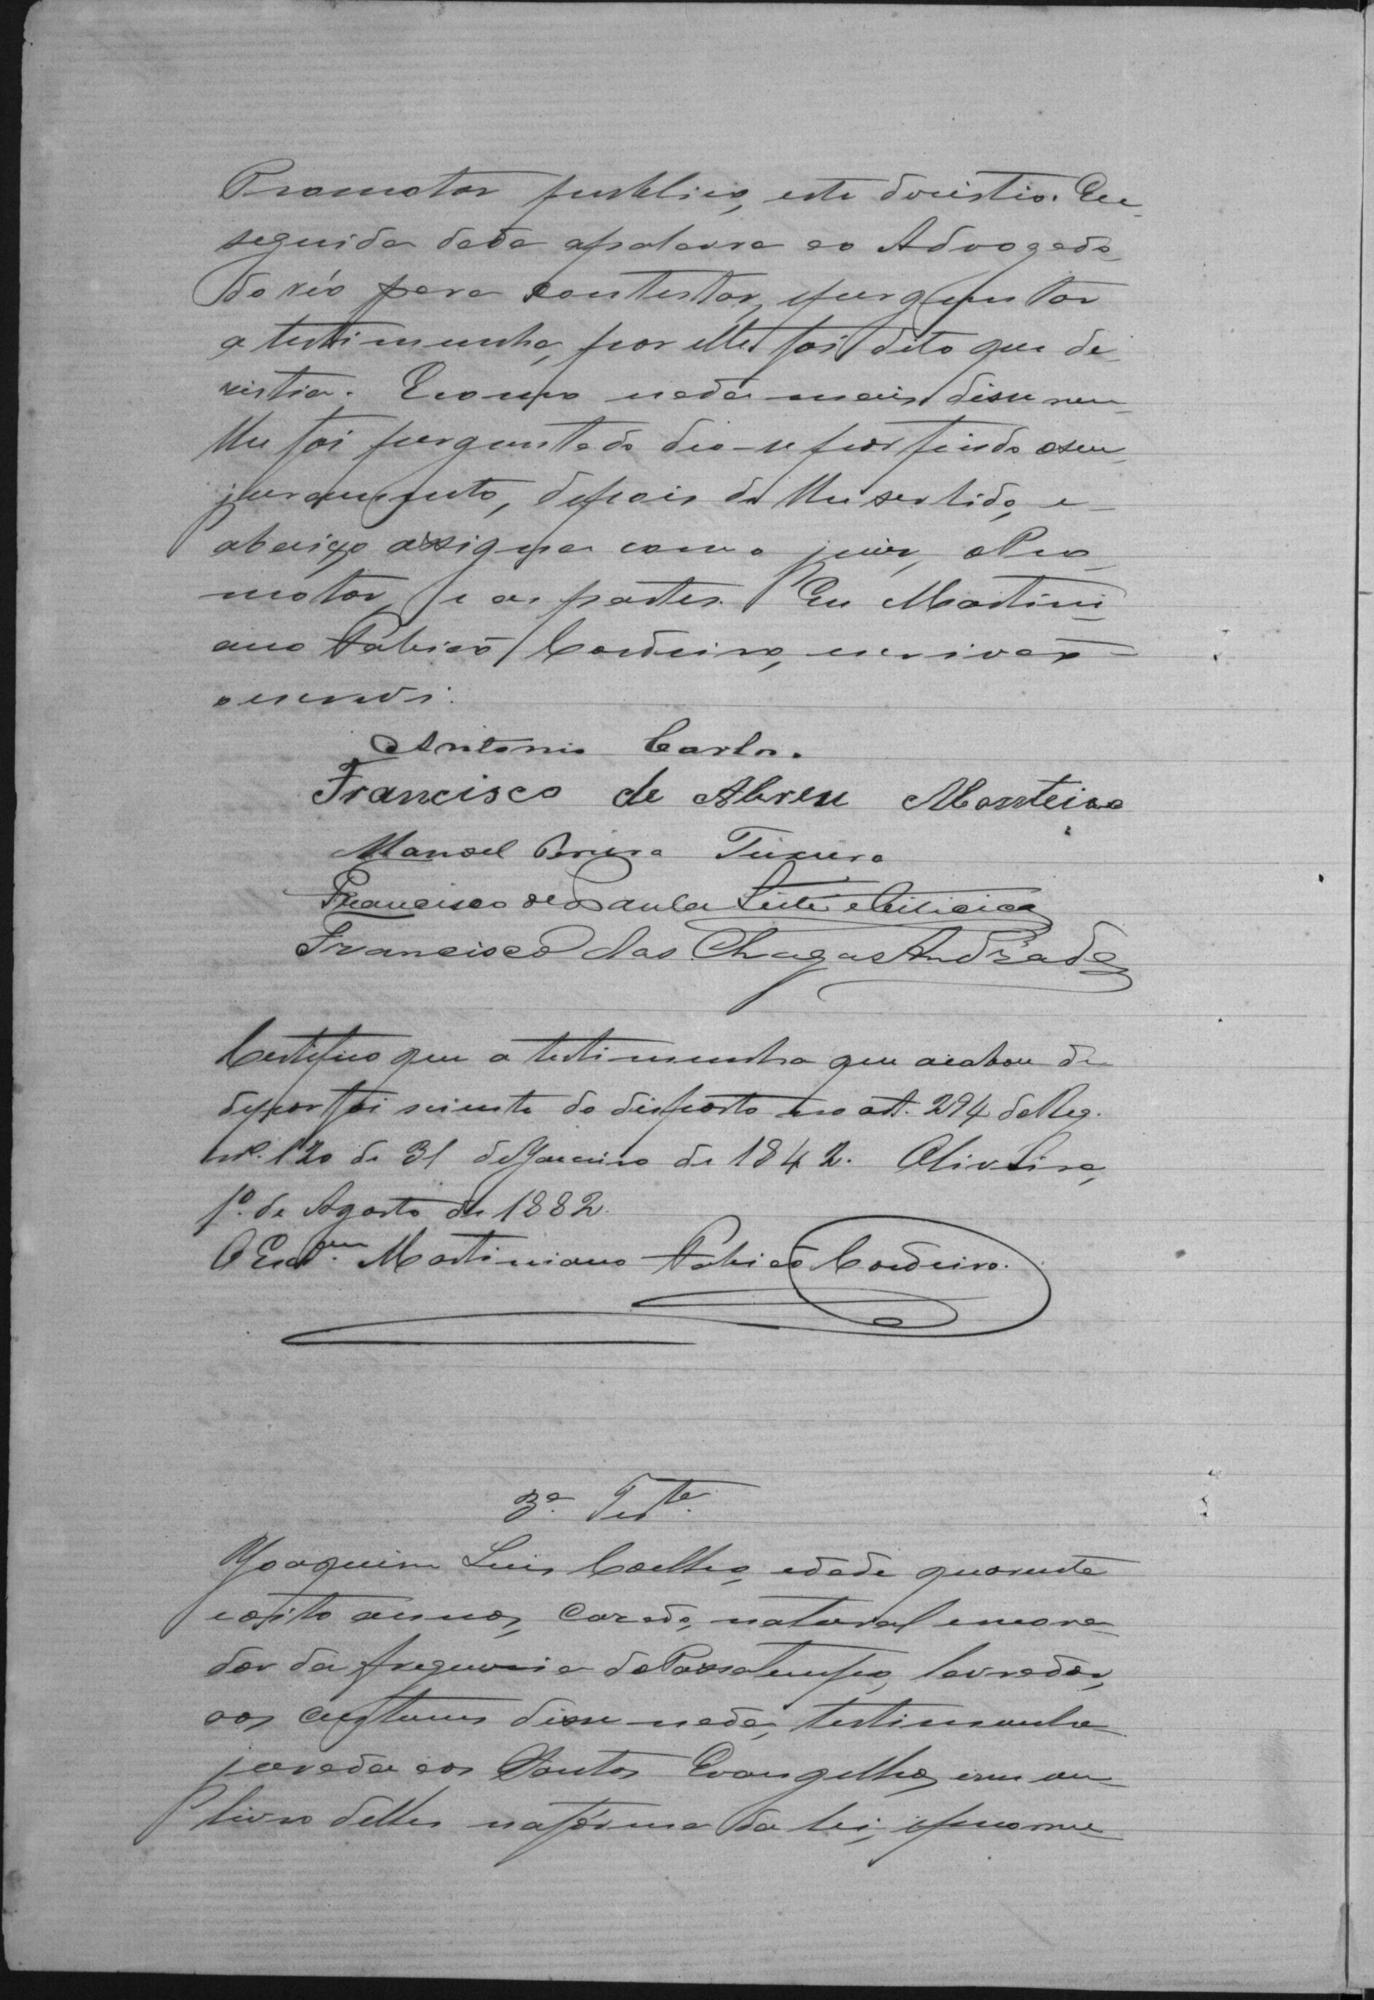 Promotor publico, este desistio. Em
seguida dada a palavra ao Advogado
do réo para contestar, e perguntar
a testimunha, por elle foi dito que de
sistia. E como nada mais disse nem
lhe foi perguntado deo-se por findo o seu
juramento, depois de lhe ser lido, e
abaixo assigna com o juiz, o Pro
motor, e as partes. Eu Martini
ano Fabião Cordeiro, escrivão
o escrevi.
Antonio Carlos.
Francisco de Abreu Monteiro
Manoel Teixeira
Francisco de Paula Leite e
Francisco das Chagas Andrade
Certifico que a testimunha que acabou de
depor foi sciente do disposto no art. 294 do Reg.
nº. 120 de 31 de Janeiro de 1842. Oliveira,
1º. de Agosto de 1882.
O Escr.am Martiniano Fabião Cordeiro.
3ª. Teste.
Joaquim Luis Coelho, edade quarenta
e oito annos, casado, natural e mora
dor da freguesia do Passatempo, lavrador,
aos custumes disse nada; testimunha
jurada aos Santos Evangelhos, em um
livro delles na fórma da lei, e prome